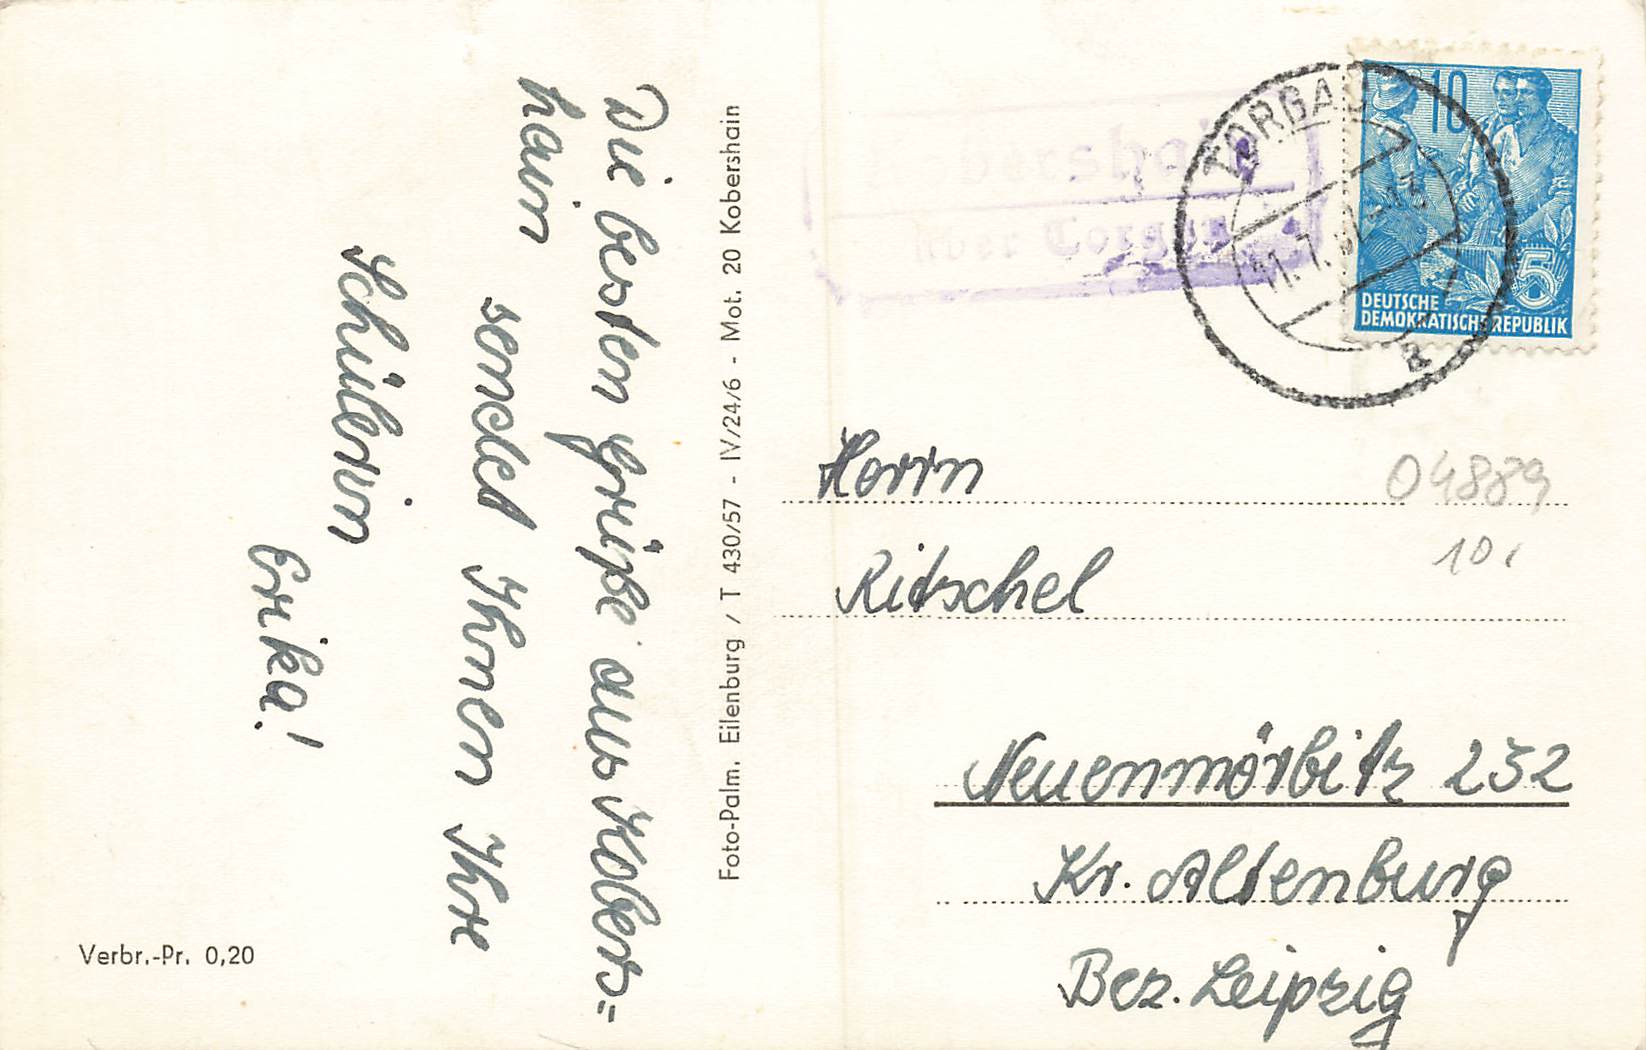 Die besten Grüße aus Kobers=
hain
sendet Ihnen Ihre
Schülerin
Erika!
Verbr.-Pr. 0,20
Foto-Palm. Eilenburg / T 430/57 - IV/24/6 - Mot. 20 Kobershain
Kobershain
über Torgau
TORGAU
a
10
5
DEUTSCHE
DEMOKRATISCHE REPUBLIK
04889
10,
Herrn
Ritschel
Neuenmörbitz 232
Kr. Altenburg
Bez. Leipzig